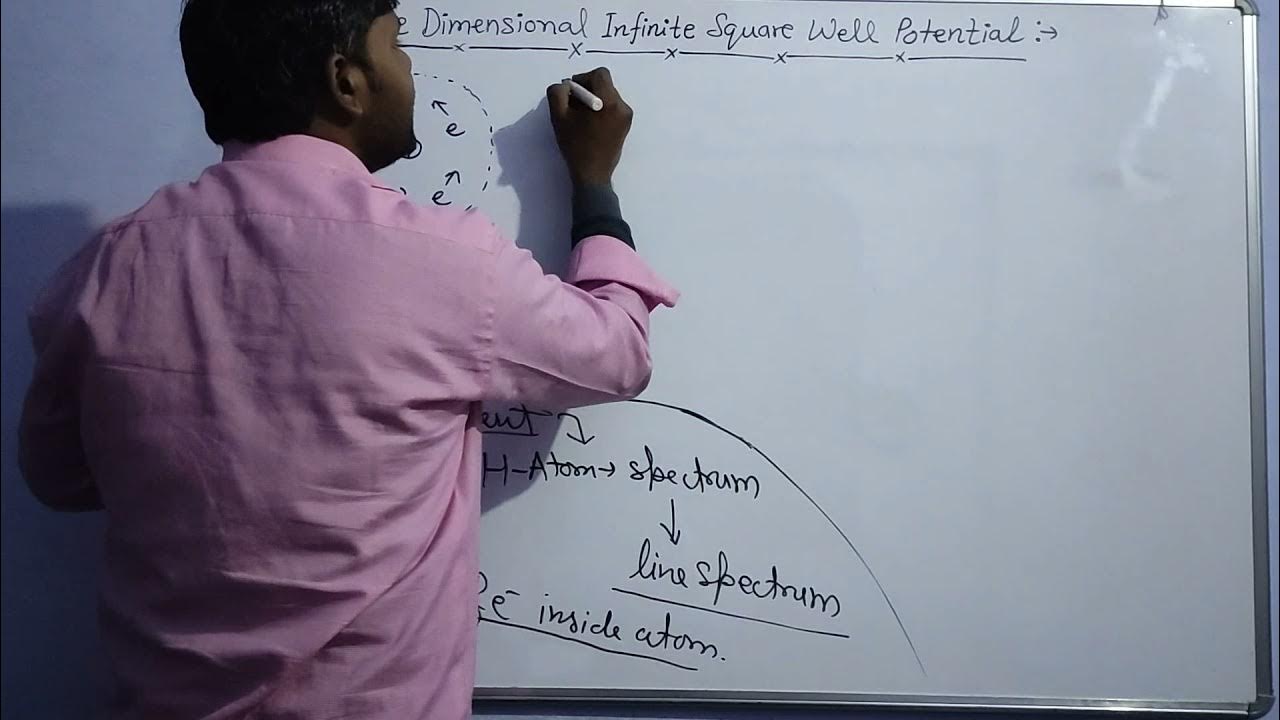 e Dimensional Infinite Square Well Potential :→
e
e
ent
H-Atom→ spectrum
line spectrum
e⁻ inside atom.